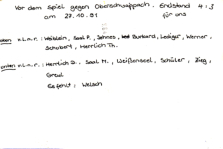 Vor dem Spiel gegen Oberschwappach. Endstand 4:3
am 27.10.91 für uns
oben v.l.n.r.: Weißlein, Saal P., Jahnes, Burkard, Lediger, Werner,
Schubert, Herrlich Th.
unten v.l.n.r.: Herrlich S., Saal M., Weißenseel, Schüler, Zieg,
Greul
Es fehlt: Welsch